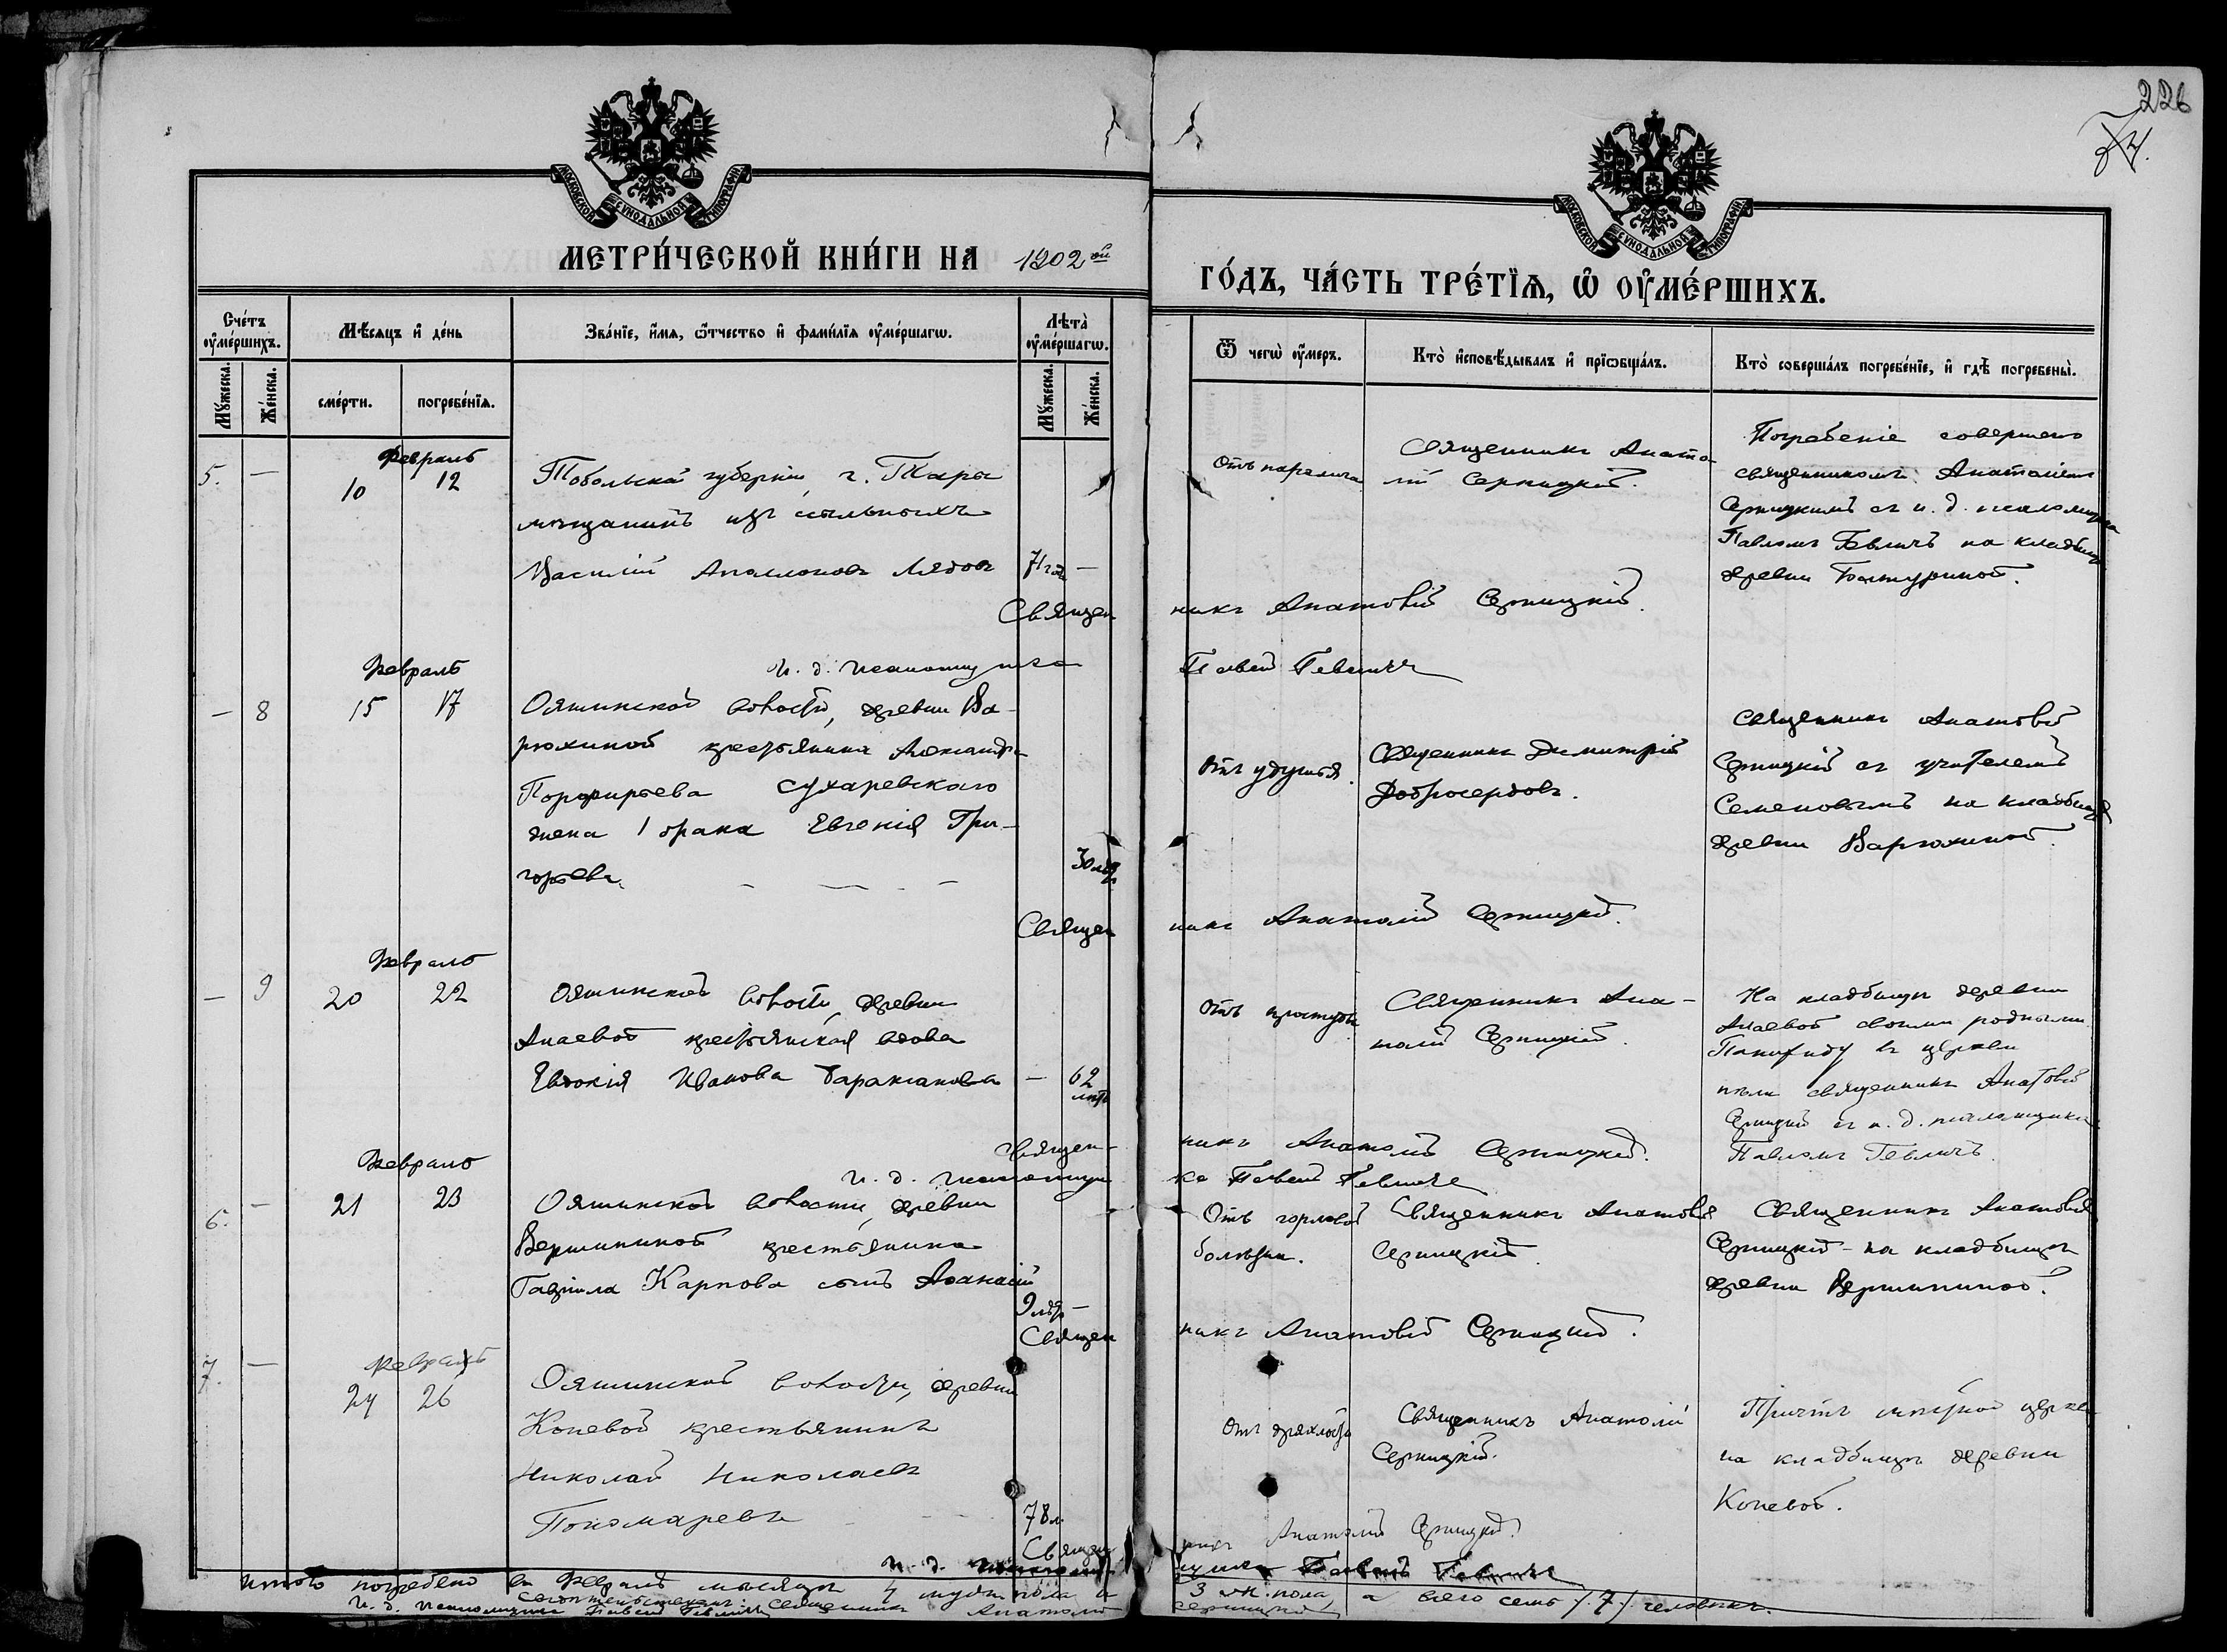 226
74.
МОСКОВСКОЙ СѴНОДАЛЬНОЙ ТИПОГРАФІИ
МОСКОВСКОЙ СѴНОДАЛЬНОЙ ТИПОГРАФІИ
МЕТРИ́ЧЕСКОЙ КНИ́ГИ НА 1902ой
ГО́ДЪ, ЧА́СТЬ ТРЕ́ТЇѦ, Ѡ҆ ОУ҆МЕ́РШИХЪ.
Сче́тъ оу҆ме́ршихъ.
Мꙋ́жеска.
Же́нска.
Мѣ́сѧцъ и҆ де́нь
сме́рти.
погребе́нїѧ.
Зва́нїе, и҆́мѧ, ѻ҆́тчество и҆ фами́лїѧ оу҆ме́ршагѡ.
Лѣ̀та оу҆ме́ршагѡ.
Мꙋ́жеска.
Же́нска.
Ѿ чегѡ̀ оу҆́меръ.
Кто̀ и҆сповѣ́дывалъ и҆ прїѡбща́лъ.
Кто̀ соверша́лъ погребе́нїе, и҆ гдѣ̀ погребены̀.
5. —
Февраль
10 12
Тобольской губерніи, г. Тары
мѣщанинъ изъ ссыльныхъ
Василій Аполлоновъ Лядовъ
71 годъ —
Отъ паралича
Священникъ Анато-
лій Серницкій.
Погребеніе совершено
священникомъ Анатоліемъ
Серницкимъ съ и. д. псаломщика
Павломъ Гевличъ на кладбищѣ
деревни Батуриной.
Священникъ Анатолій Серницкій.
И. д. псаломщика Павелъ Гевличъ
— 8
Февраль
15 17
Ояшинской волости, деревни Ва-
рюхиной крестьянина Александра
Порфирьева Сухаревскаго
жена 1 брака Евгенія Гри-
горьева. — — —
30 лѣтъ
Отъ удушья.
Священникъ Димитрій
Добросердовъ.
Священникъ Анатолій
Серницкій съ учителемъ
Семеновымъ на кладбищѣ
деревни Варюхиной.
Священникъ Анатолій Серницкій.
— 9
Февраль
20 22
Ояшинской волости, деревни
Алаевой крестьянская вдова
Евдокія Иванова Тараканова
— 62 лѣтъ
Отъ простуды
Священникъ Ана-
толій Серницкій.
На кладбищѣ деревни
Алаевой своими родными.
Панихиду въ церкви
пѣли священникъ Анатолій
Серницкій съ и. д. псаломщика
Павломъ Гевличъ.
Священникъ Анатолій Серницкій.
И. д. псаломщика Павелъ Гевличъ
6. —
Февраль
21 23
Ояшинской волости, деревни
Вершининой крестьянина
Гавріила Карпова сынъ Аѳанасій
9 лѣтъ —
Отъ горловой
болѣзни.
Священникъ Анатолій
Серницкій.
Священникъ Анатолій
Серницкій – на кладбищѣ
деревни Вершининой.
Священникъ Анатолій Серницкій.
7. —
Февраль
24 26
Ояшинской волости, деревни
Коневой крестьянинъ
Николай Николаевъ
Пономаревъ — —
78 л.
Отъ дряхлости
Священникъ Анатолій
Серницкій.
Причтъ мѣстной церкви
на кладбищѣ деревни
Коневой.
Священникъ Анатолій Серницкій.
И. д. псаломщика Павелъ Гевличъ
Итого погребено въ Февралѣ мѣсяцѣ 4 мужск. пола и 3 жен. пола, а всего семь /.7./ человѣкъ.
Священникъ Анатолій Серницкій
И. д. псаломщика Павелъ Гевличъ